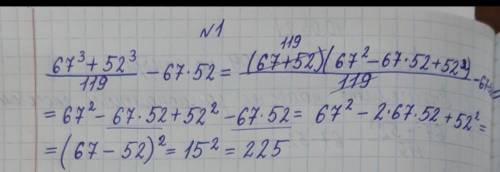 №1
(67³ + 52³)/119 − 67·52 = (67+52)(67² − 67·52 + 52²)/119
119
= 67² − 67·52 + 52² − 67·52 = 67² − 2·67·52 + 52² =
= (67 − 52)² = 15² = 225